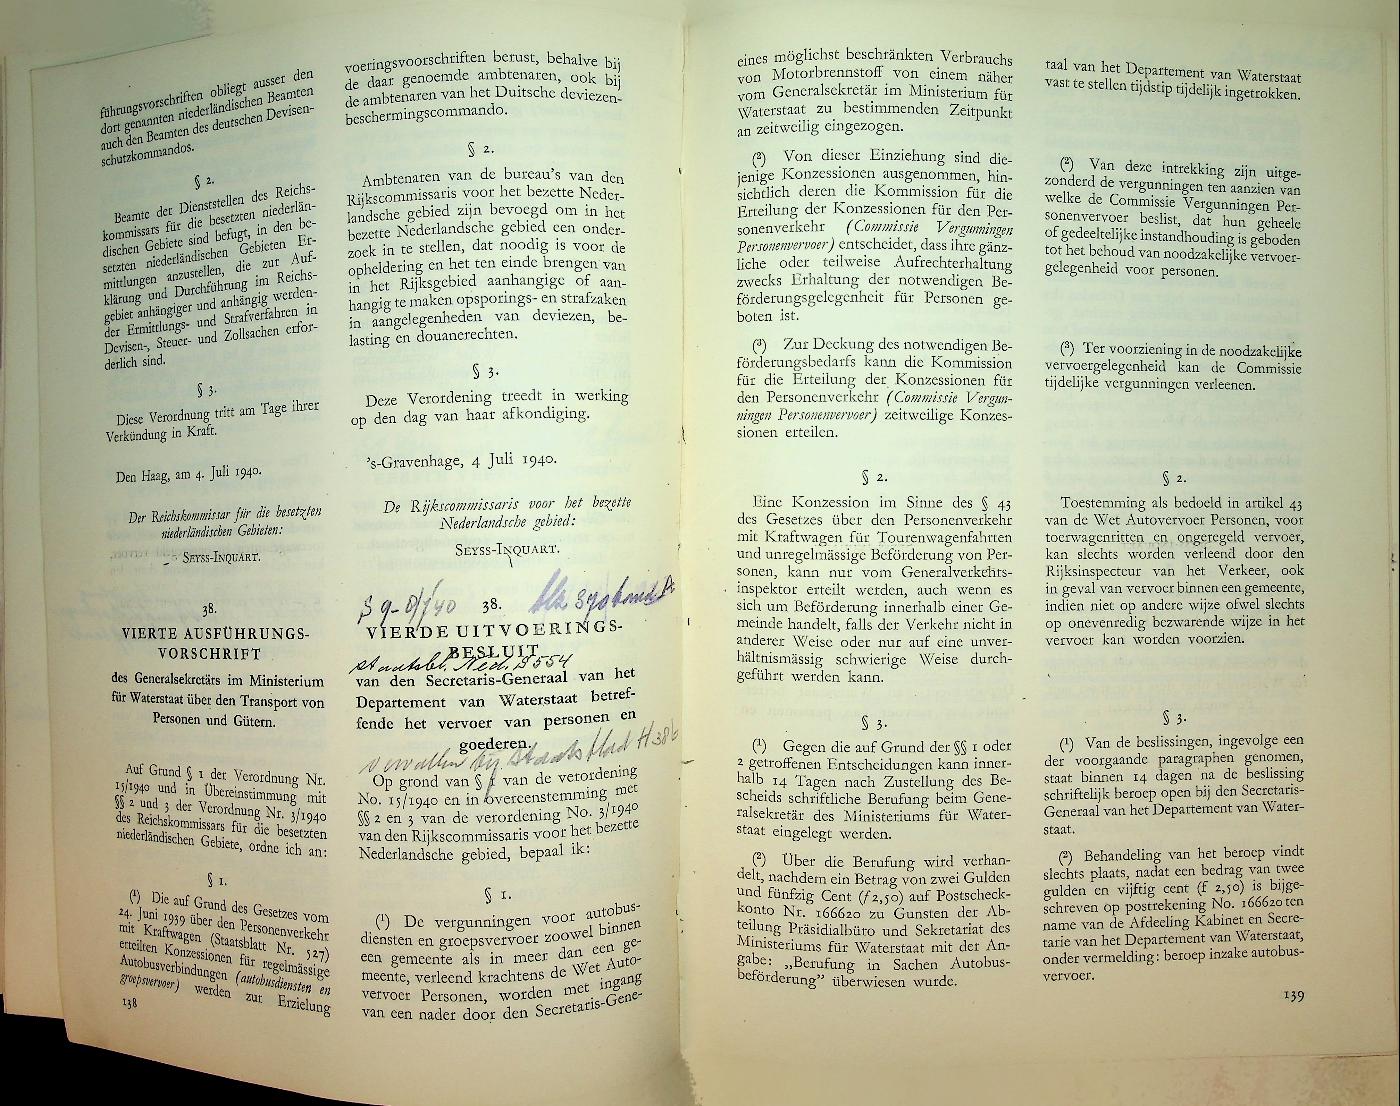 führungsvorschriften obliegt ausser den
dort genannten niederländischen Beamten
auch den Beamten des deutschen Devisen-
schutzkommandos.
§ 2.
Beamte der Dienststellen des Reichs-
kommissars für die besetzten niederlän-
dischen Gebiete sind befugt, in den be-
setzten niederländischen Gebieten Er-
mittlungen anzustellen, die zur Auf-
klärung und Durchführung im Reichs-
gebiet anhängiger und anhängig werden-
der Ermittlungs- und Strafverfahren in
Devisen-, Steuer- und Zollsachen erfor-
derlich sind.
§ 3.
Diese Verordnung tritt am Tage ihrer
Verkündung in Kraft.
Den Haag, am 4. Juli 1940.
Der Reichskommissar für die besetzten
niederländischen Gebieten:
SEYSS-INQUART.
38.
VIERTE AUSFÜHRUNGS-
VORSCHRIFT
des Generalsekretärs im Ministerium
für Waterstaat über den Transport von
Personen und Gütern.
Auf Grund § 1 der Verordnung Nr.
15/1940 und in Übereinstimmung mit
§§ 2 und 3 der Verordnung Nr. 3/1940
des Reichskommissars für die besetzten
niederländischen Gebiete, ordne ich an:
§ 1.
(¹) Die auf Grund des Gesetzes vom
24. Juni 1939 über den Personenverkehr
mit Kraftwagen (Staatsblatt Nr. 527)
erteilten Konzessionen für regelmässige
Autobusverbindungen (autobusdiensten en
groepsvervoer) werden zur Erzielung
138
voeringsvoorschriften berust, behalve bij
de daar genoemde ambtenaren, ook bij
de ambtenaren van het Duitsche deviezen-
beschermingscommando.
§ 2.
Ambtenaren van de bureau's van den
Rijkscommissaris voor het bezette Neder-
landsche gebied zijn bevoegd om in het
bezette Nederlandsche gebied een onder-
zoek in te stellen, dat noodig is voor de
opheldering en het ten einde brengen van
in het Rijksgebied aanhangige of aan-
hangig te maken opsporings- en strafzaken
in aangelegenheden van deviezen, be-
lasting en douanerechten.
§ 3.
Deze Verordening treedt in werking
op den dag van haar afkondiging.
's-Gravenhage, 4 Juli 1940.
De Rijkscommissaris voor het bezette
Nederlandsche gebied:
SEYSS-INQUART.
38.
VIERDE UITVOERINGS-
BESLUIT
Staatsbl. Ned. S554
van den Secretaris-Generaal van het
Departement van Waterstaat betref-
fende het vervoer van personen en
goederen.
vervallen bij Staatsblad H386
Op grond van § 1 van de verordening
No. 15/1940 en in overeenstemming met
§§ 2 en 3 van de verordening No. 3/1940
van den Rijkscommissaris voor het bezette
Nederlandsche gebied, bepaal ik:
§ 1.
(¹) De vergunningen voor autobus-
diensten en groepsvervoer zoowel binnen
een gemeente als in meer dan een ge-
meente, verleend krachtens de Wet Auto-
vervoer Personen, worden met ingang
van een nader door den Secretaris-Gene-
eines möglichst beschränkten Verbrauchs
von Motorbrennstoff von einem näher
vom Generalsekretär im Ministerium für
Waterstaat zu bestimmenden Zeitpunkt
an zeitweilig eingezogen.
(²) Von dieser Einziehung sind die-
jenige Konzessionen ausgenommen, hin-
sichtlich deren die Kommission für die
Erteilung der Konzessionen für den Per-
sonenverkehr (Commissie Vergunningen
Personenvervoer) entscheidet, dass ihre gänz-
liche oder teilweise Aufrechterhaltung
zwecks Erhaltung der notwendigen Be-
förderungsgelegenheit für Personen ge-
boten ist.
(³) Zur Deckung des notwendigen Be-
förderungsbedarfs kann die Kommission
für die Erteilung der Konzessionen für
den Personenverkehr (Commissie Vergun-
ningen Personenvervoer) zeitweilige Konzes-
sionen erteilen.
§ 2.
Eine Konzession im Sinne des § 43
des Gesetzes über den Personenverkehr
mit Kraftwagen für Tourenwagenfahrten
und unregelmässige Beförderung von Per-
sonen, kann nur vom Generalverkehrs-
inspektor erteilt werden, auch wenn es
sich um Beförderung innerhalb einer Ge-
meinde handelt, falls der Verkehr nicht in
anderer Weise oder nur auf eine unver-
hältnismässig schwierige Weise durch-
geführt werden kann.
§ 3.
(¹) Gegen die auf Grund der §§ 1 oder
2 getroffenen Entscheidungen kann inner-
halb 14 Tagen nach Zustellung des Be-
scheids schriftliche Berufung beim Gene-
ralsekretär des Ministeriums für Water-
staat eingelegt werden.
(²) Über die Berufung wird verhan-
delt, nachdem ein Betrag von zwei Gulden
und fünfzig Cent (f 2,50) auf Postscheck-
konto Nr. 166620 zu Gunsten der Ab-
teilung Präsidialbüro und Sekretariat des
Ministeriums für Waterstaat mit der An-
gabe: „Berufung in Sachen Autobus-
beförderung” überwiesen wurde.
raal van het Departement van Waterstaat
vast te stellen tijdstip tijdelijk ingetrokken.
(²) Van deze intrekking zijn uitge-
zonderd de vergunningen ten aanzien van
welke de Commissie Vergunningen Per-
sonenvervoer beslist, dat hun geheele
of gedeeltelijke instandhouding is geboden
tot het behoud van noodzakelijke vervoer-
gelegenheid voor personen.
(³) Ter voorziening in de noodzakelijke
vervoergelegenheid kan de Commissie
tijdelijke vergunningen verleenen.
§ 2.
Toestemming als bedoeld in artikel 43
van de Wet Autovervoer Personen, voor
toerwagentitten en ongeregeld vervoer,
kan slechts worden verleend door den
Rijksinspecteur van het Verkeer, ook
in geval van vervoer binnen een gemeente,
indien niet op andere wijze ofwel slechts
op onevenredig bezwarende wijze in het
vervoer kan worden voorzien.
§ 3.
(¹) Van de beslissingen, ingevolge een
der voorgaande paragraphen genomen,
staat binnen 14 dagen na de beslissing
schriftelijk beroep open bij den Secretaris-
Generaal van het Departement van Water-
staat.
(²) Behandeling van het beroep vindt
slechts plaats, nadat een bedrag van twee
gulden en vijftig cent (f 2,50) is bijge-
schreven op postrekening No. 166620 ten
name van de Afdeeling Kabinet en Secre-
tarie van het Departement van Waterstaat,
onder vermelding: beroep inzake autobus-
vervoer.
139